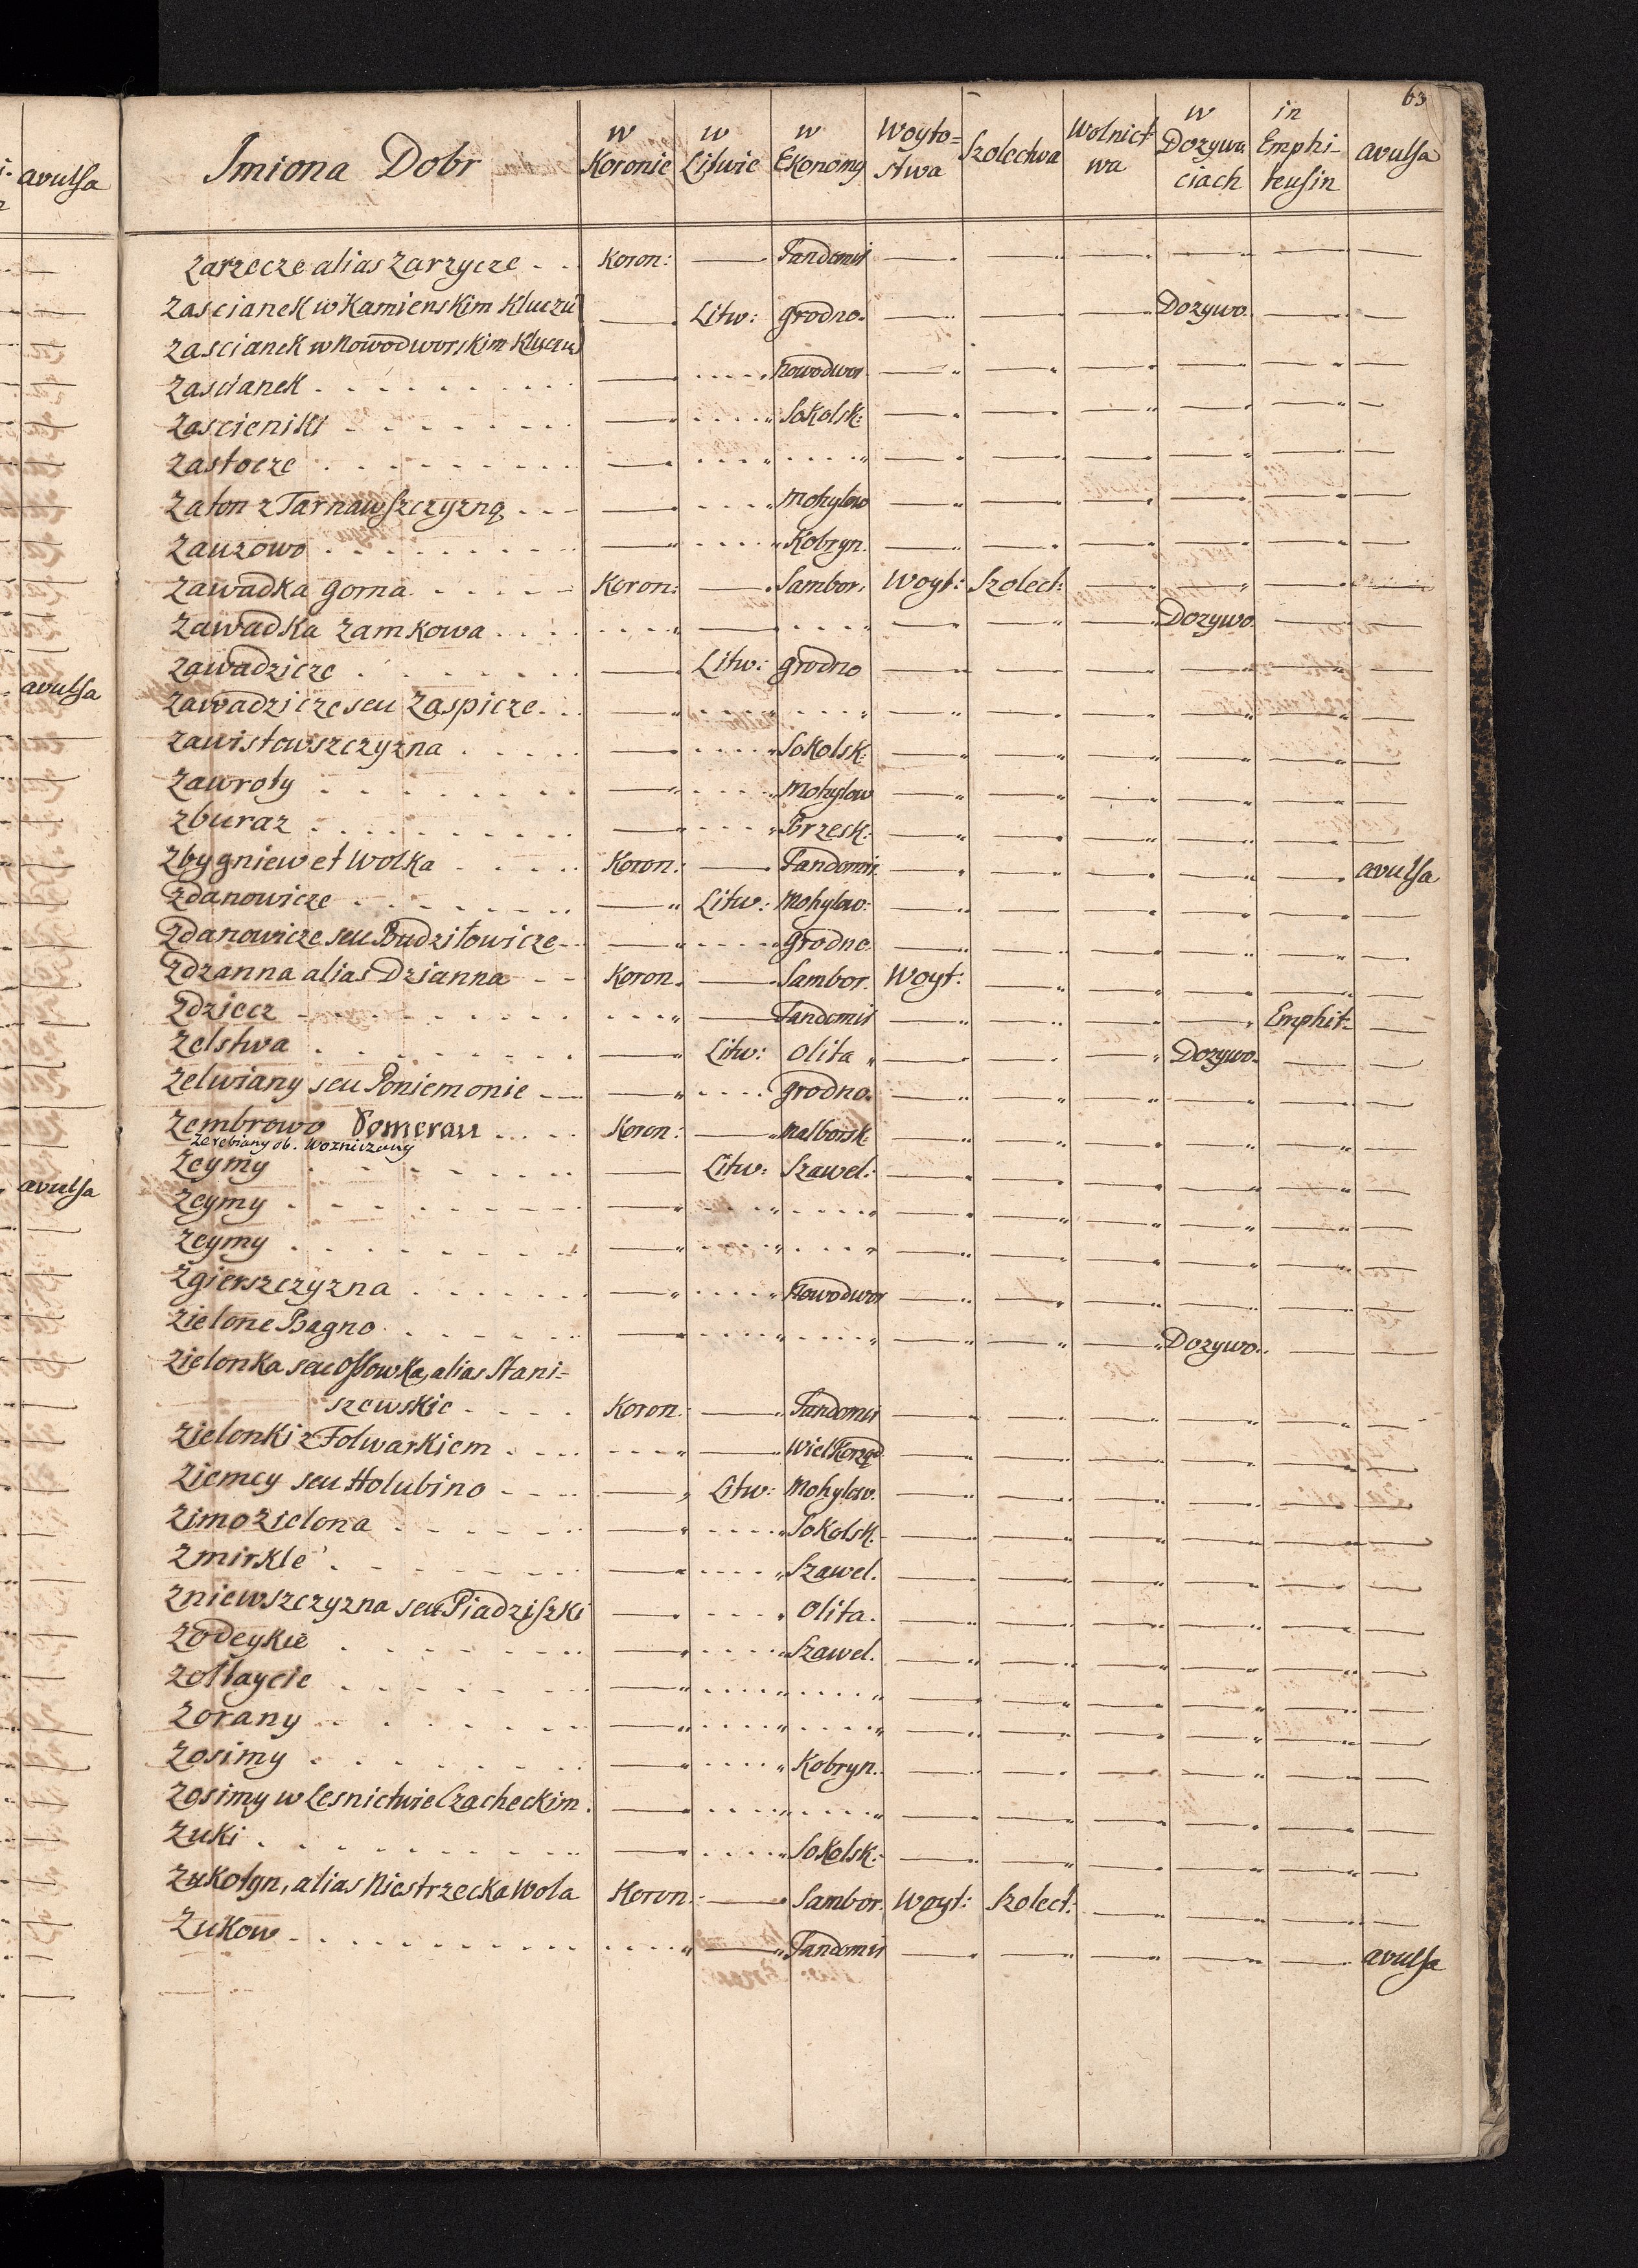 63
Imiona Dobr | w Koronie | w Litwie | w Ekonomy | Woyto=stwa | Szolectwa | Wolnictwa | w Dozywaciach | in Emphi-teusin | avulsa
Zarzecze alias Zarzycze - . Koron: Sandomir
Zascianek w Kamienskim Kluczu Litw: Grodno. Dozywo.
Zascianek w Nowodworskim Kluczu
Zascianek . . . . . . . Nowodwor
Zascieniki . . . . . . . Sokolsk:
Zastocze . . . . . . .
Zaton z Tarnawszczyzną . . . Mohylow
Zauzowo . . . . . . . Kobryn.
Zawadka Gorna . . . . Koron: Sambor. Woyt: Szolect:
Zawadka Zamkowa . . . . Dozywo.
Zawadzicze . . . . . . Litw: Grodno
Zawadzicze seu Zaspicze . .
Zawistowszczyzna . . . . Sokolsk:
Zawroty . . . . . . . Mohylow
Zburaz . . . . . . . Brzesk:
Zbygniew et Wolka . . . Koron: Sandomir. avulsa
Zdanowicze . . . . . . Litw: Mohylow:
Zdanowicze seu Budzitowicze - Grodno.
Zdzanna alias Dzianna - - Koron. Sambor. Woyt:
Zdziecz . . . . . . . Sandomir Emphit:
Zelstwa . . . . . . . Litw: Olita Dozywo.
Zelwiany seu Poniemonie - - Grodno.
Zembrowo Pomeran . . . . Koron: Malborsk:
Zerebiany ob. Wozniczany
Zeymy . . . . . . . Litw: Szawel:
Zeymy . . . . . . .
Zeymy . . . . . . .
Zgierszczyzna . . . . . Nowodwor
Zielone Bagno . . . . . Dozywo.
Zielonka seu Ossowka, alias Stani=
szewskie . . . . Koron: Sandomir
Zielonki z Folwarkiem . . . Wielkorząd
Ziemcy seu Holubino - - - Litw: Mohylow.
Zimozielona . . . . . . Sokolsk.
Zmirkle . . . . . . . Szawel.
Zniewszczyzna seu Piadziszki Olita.
Zodeykie . . . . . . . Szawel.
Zottaycie . . . . . . .
Zorany . . . . . . .
Zosimy . . . . . . . Kobryn.
Zosimy w Lesnictwie Czacheckim.
Zuki . . . . . . . Sokolsk.
Zukotyn, alias Niestrzecka Wola Koron: Sambor. Woyt: Szolect:
Zukow . . . . . . . Sandomir avulsa
avulsa
avulsa
avulsa